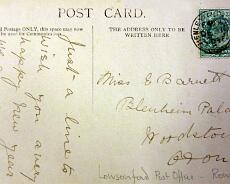 POST CARD.
Postage ONLY, this space may now
be used for Communication.
THE ADDRESS ONLY TO BE
WRITTEN HERE
Just a line to
wish you a very
happy new year
Miss E Barnett
Blenheim Pala
Woodstoc
Oxon
Lowsonford Post Office - Row